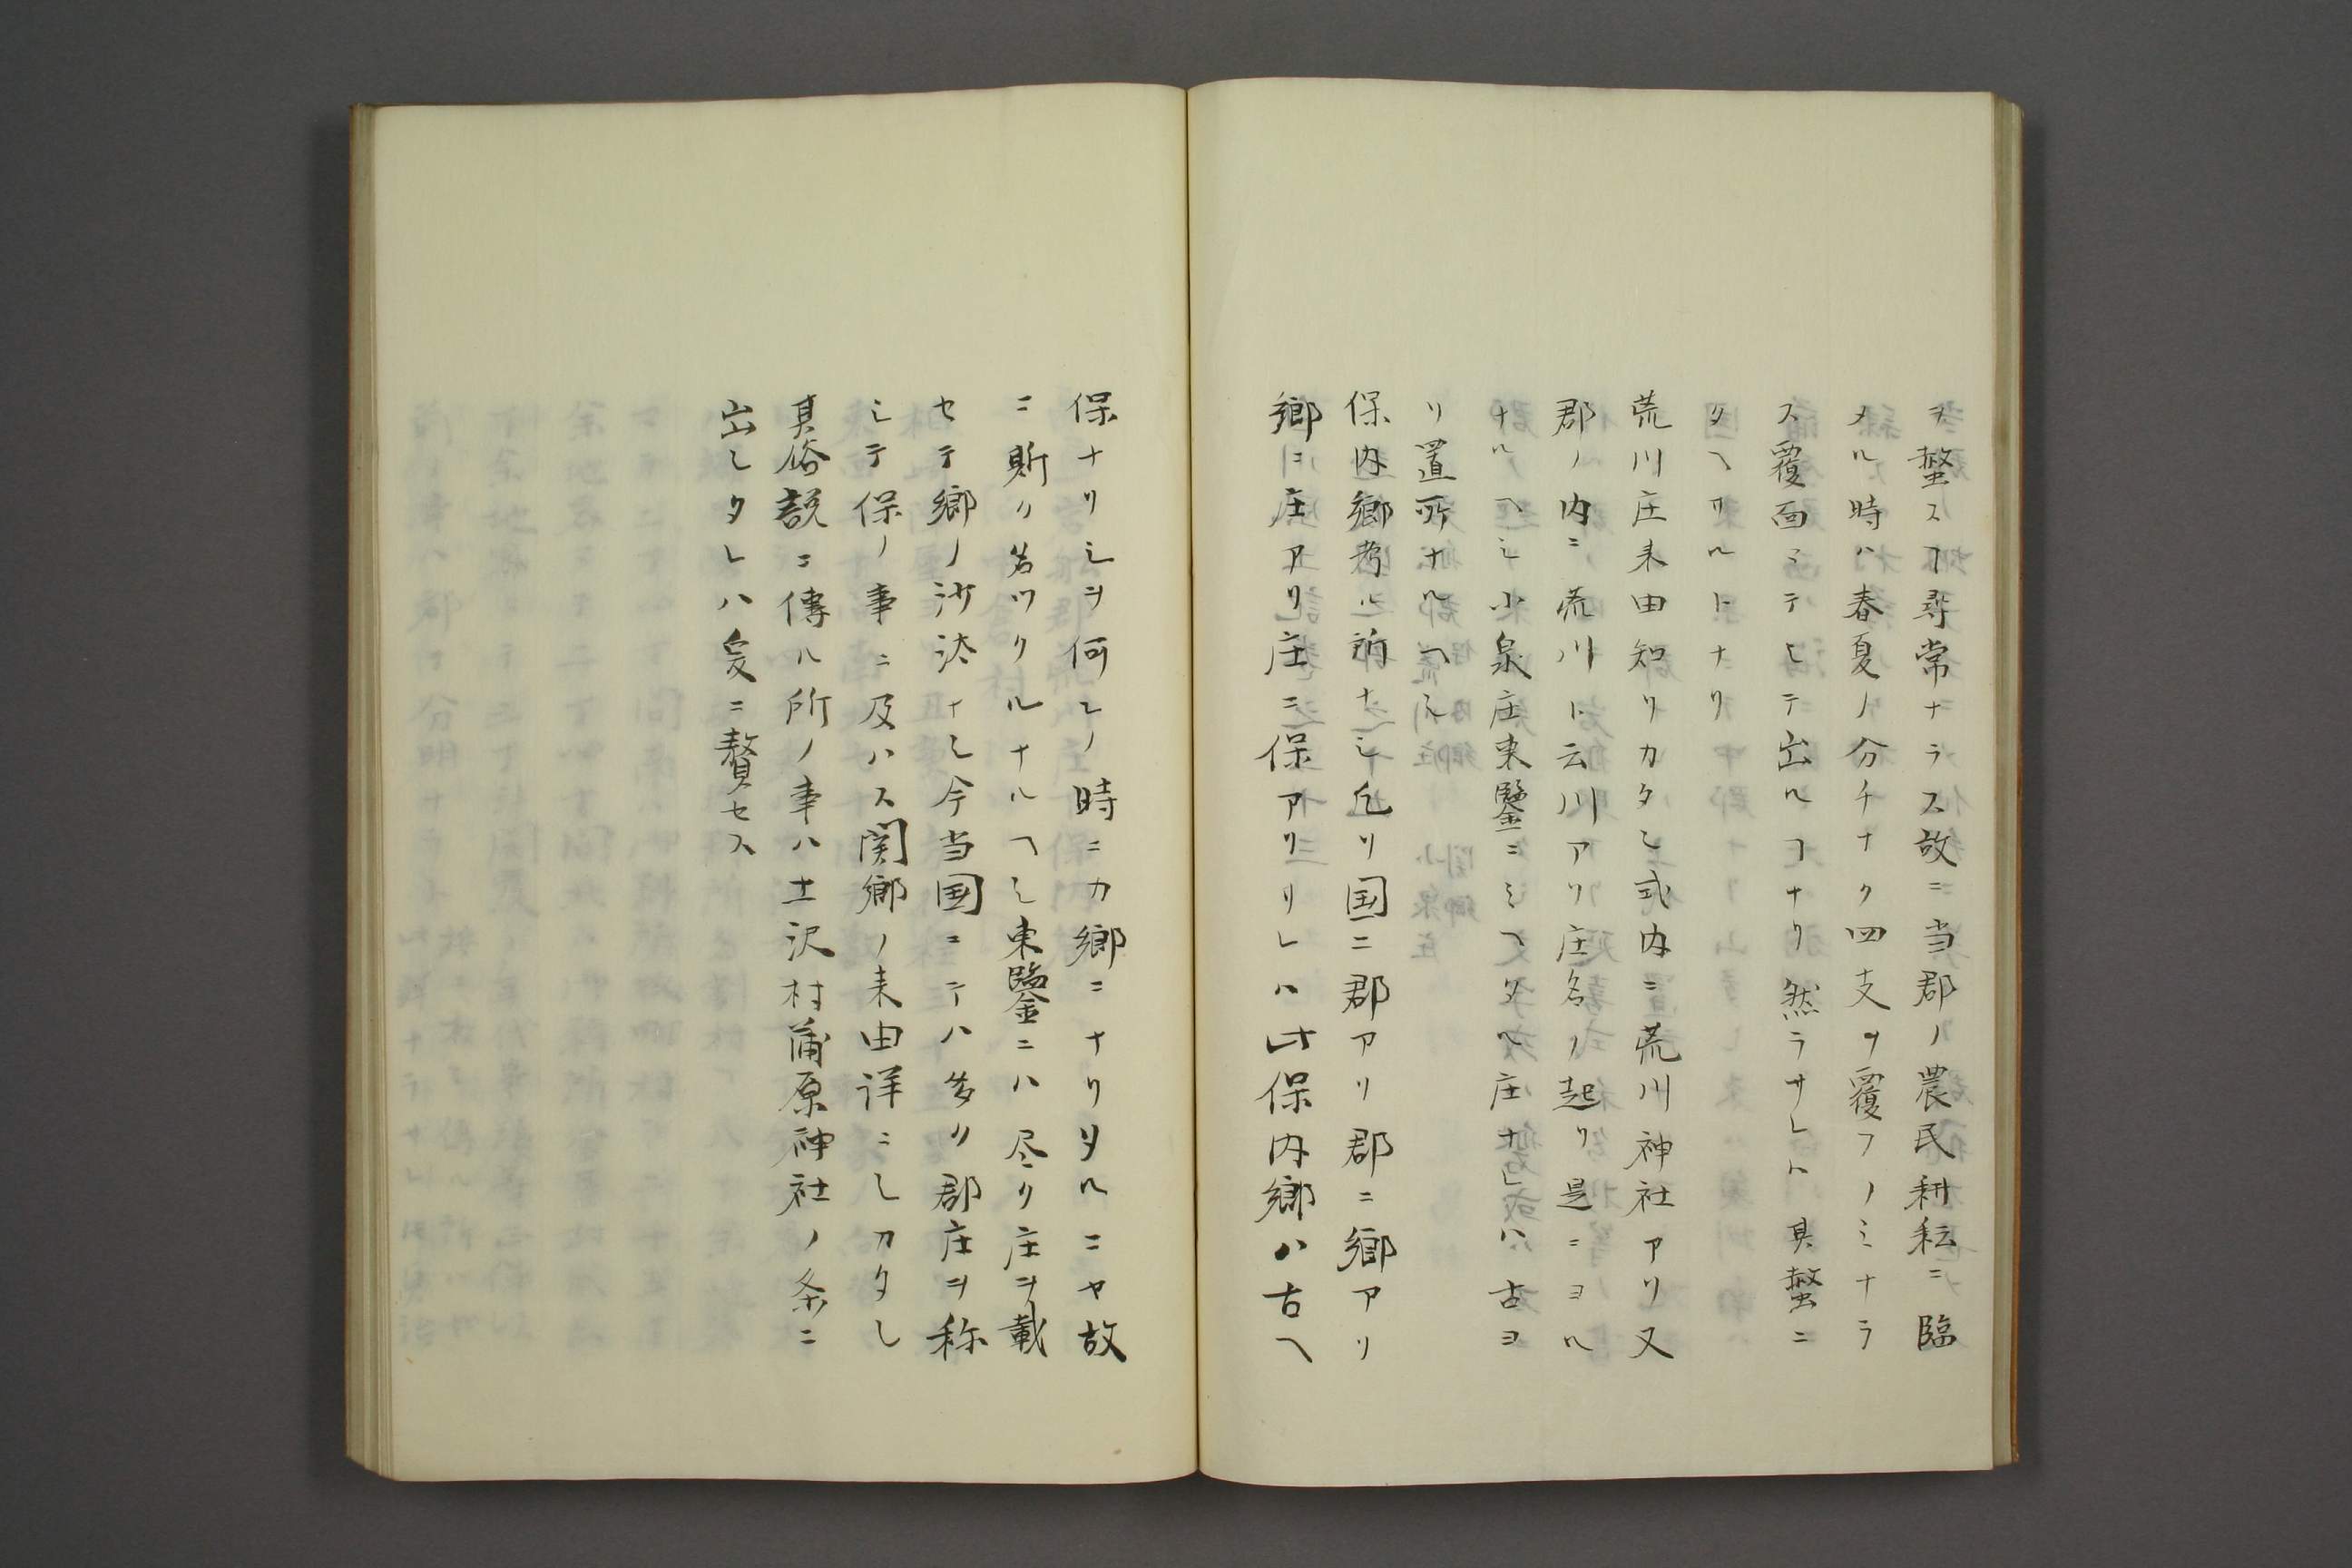 ヲ螫スヿ尋常ナラス故ニ当郡ノ農民耕耘ニ臨
メル時ハ春夏ノ分チナク四支ヲ覆フノミナラ
ス覆面ミテシテ出ルヿナリ然ラサレハ其螫ニ
タヘサルトナリ
荒川庄来由知リカタシ式内ニ荒川神社アリ又
郡ノ内ニ荒川ト云川アリ庄名ノ起リ是ニヨル
ナルヘシ小泉庄東鑒ニミヘタル庄ナレハ古ヨ
リ置所ナルヘシ
保内郷考ル所ナシ凡リ国ニ郡アリ郡ニ郷アリ
郷ニ庄アリ庄ニ保アリリレハ此保内郷ハ古ヘ
保ナリシヲ何レノ時ニカ郷ニナリタルニヤ故
ニ斯ク名ツクルナルヘシ東鑒ニハ尽ク庄ヲ載
セテ郷ノ沙汰ナシ今当国ニテハ多ク郡庄ヲ称
シテ保ノ事ニ及ハス関郷ノ来由詳ニシカタシ
其俗説ニ傳ル所ノ事ハ土沢村蒲原神社ノ条ニ
出シタレハ爰ニ贅セス